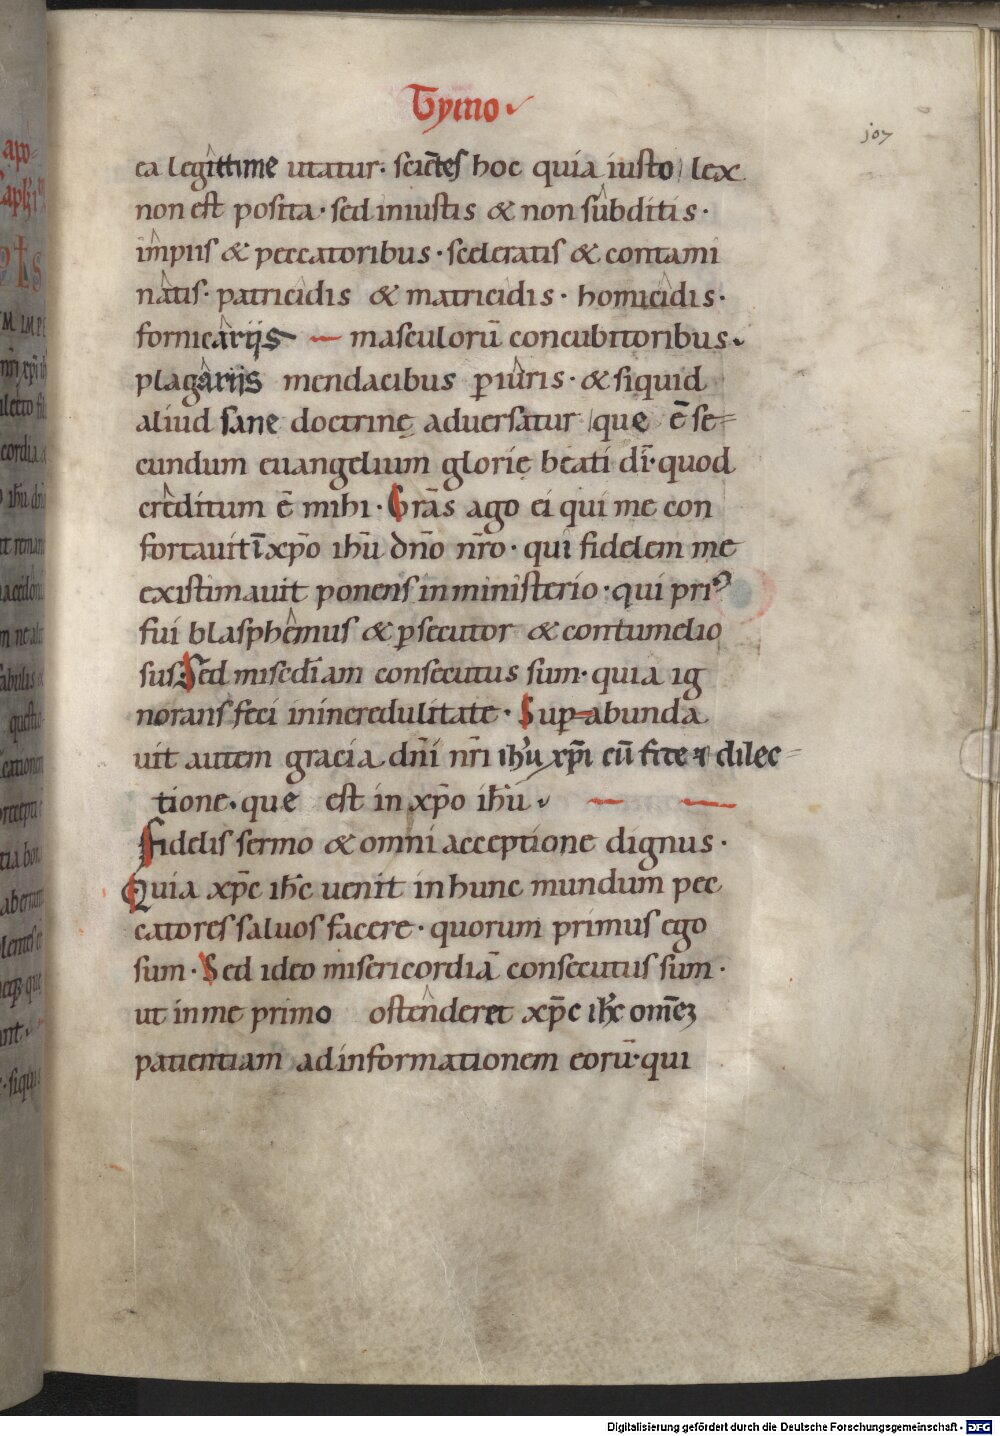 Tymo
107
ea legittime utatur· scientes hoc quia iusto lex
non est posita· sed iniustis & non subditis·
impiis & peccatoribus· sceleratis & contami
natis· patricidis & matricidis· homicidis·
fornicariis — masculorū concubitoribus·
plagariis mendacibus ꝑiuris· & siquid
aliud sane doctrinę adversatur que ē se=
cundum euangelium glorię beati di· quod
creditum ē mihi· Grās ago ei qui me con
fortauit ī xp̄o ih̄u dn̄o nr̄o· qui fidelem me
existimauit ponens in ministerio· qui pri⁹
fui blasphemus & ꝑsecutor & contumelio
sus Sed mised̄iam consecutus sum· quia ig
norans feci in incredulitate· Suꝑ abunda
uit autem gracia dn̄i nr̄i ih̄u xp̄i cū fide ⁊ dilec=
tione· que est in xp̄o ih̄u
Fidelis sermo & omni acceptione dignus·
Quia xp̄c ih̄c uenit in hunc mundum pec
catores saluos facere· quorum primus ego
sum· Sed ideo misericordiā consecutus sum·
ut in me primo ostenderet xp̄c ih̄c om̄eȝ
patientiam ad informationem eorū· qui
Digitalisierung gefördert durch die Deutsche Forschungsgemeinschaft - DFG